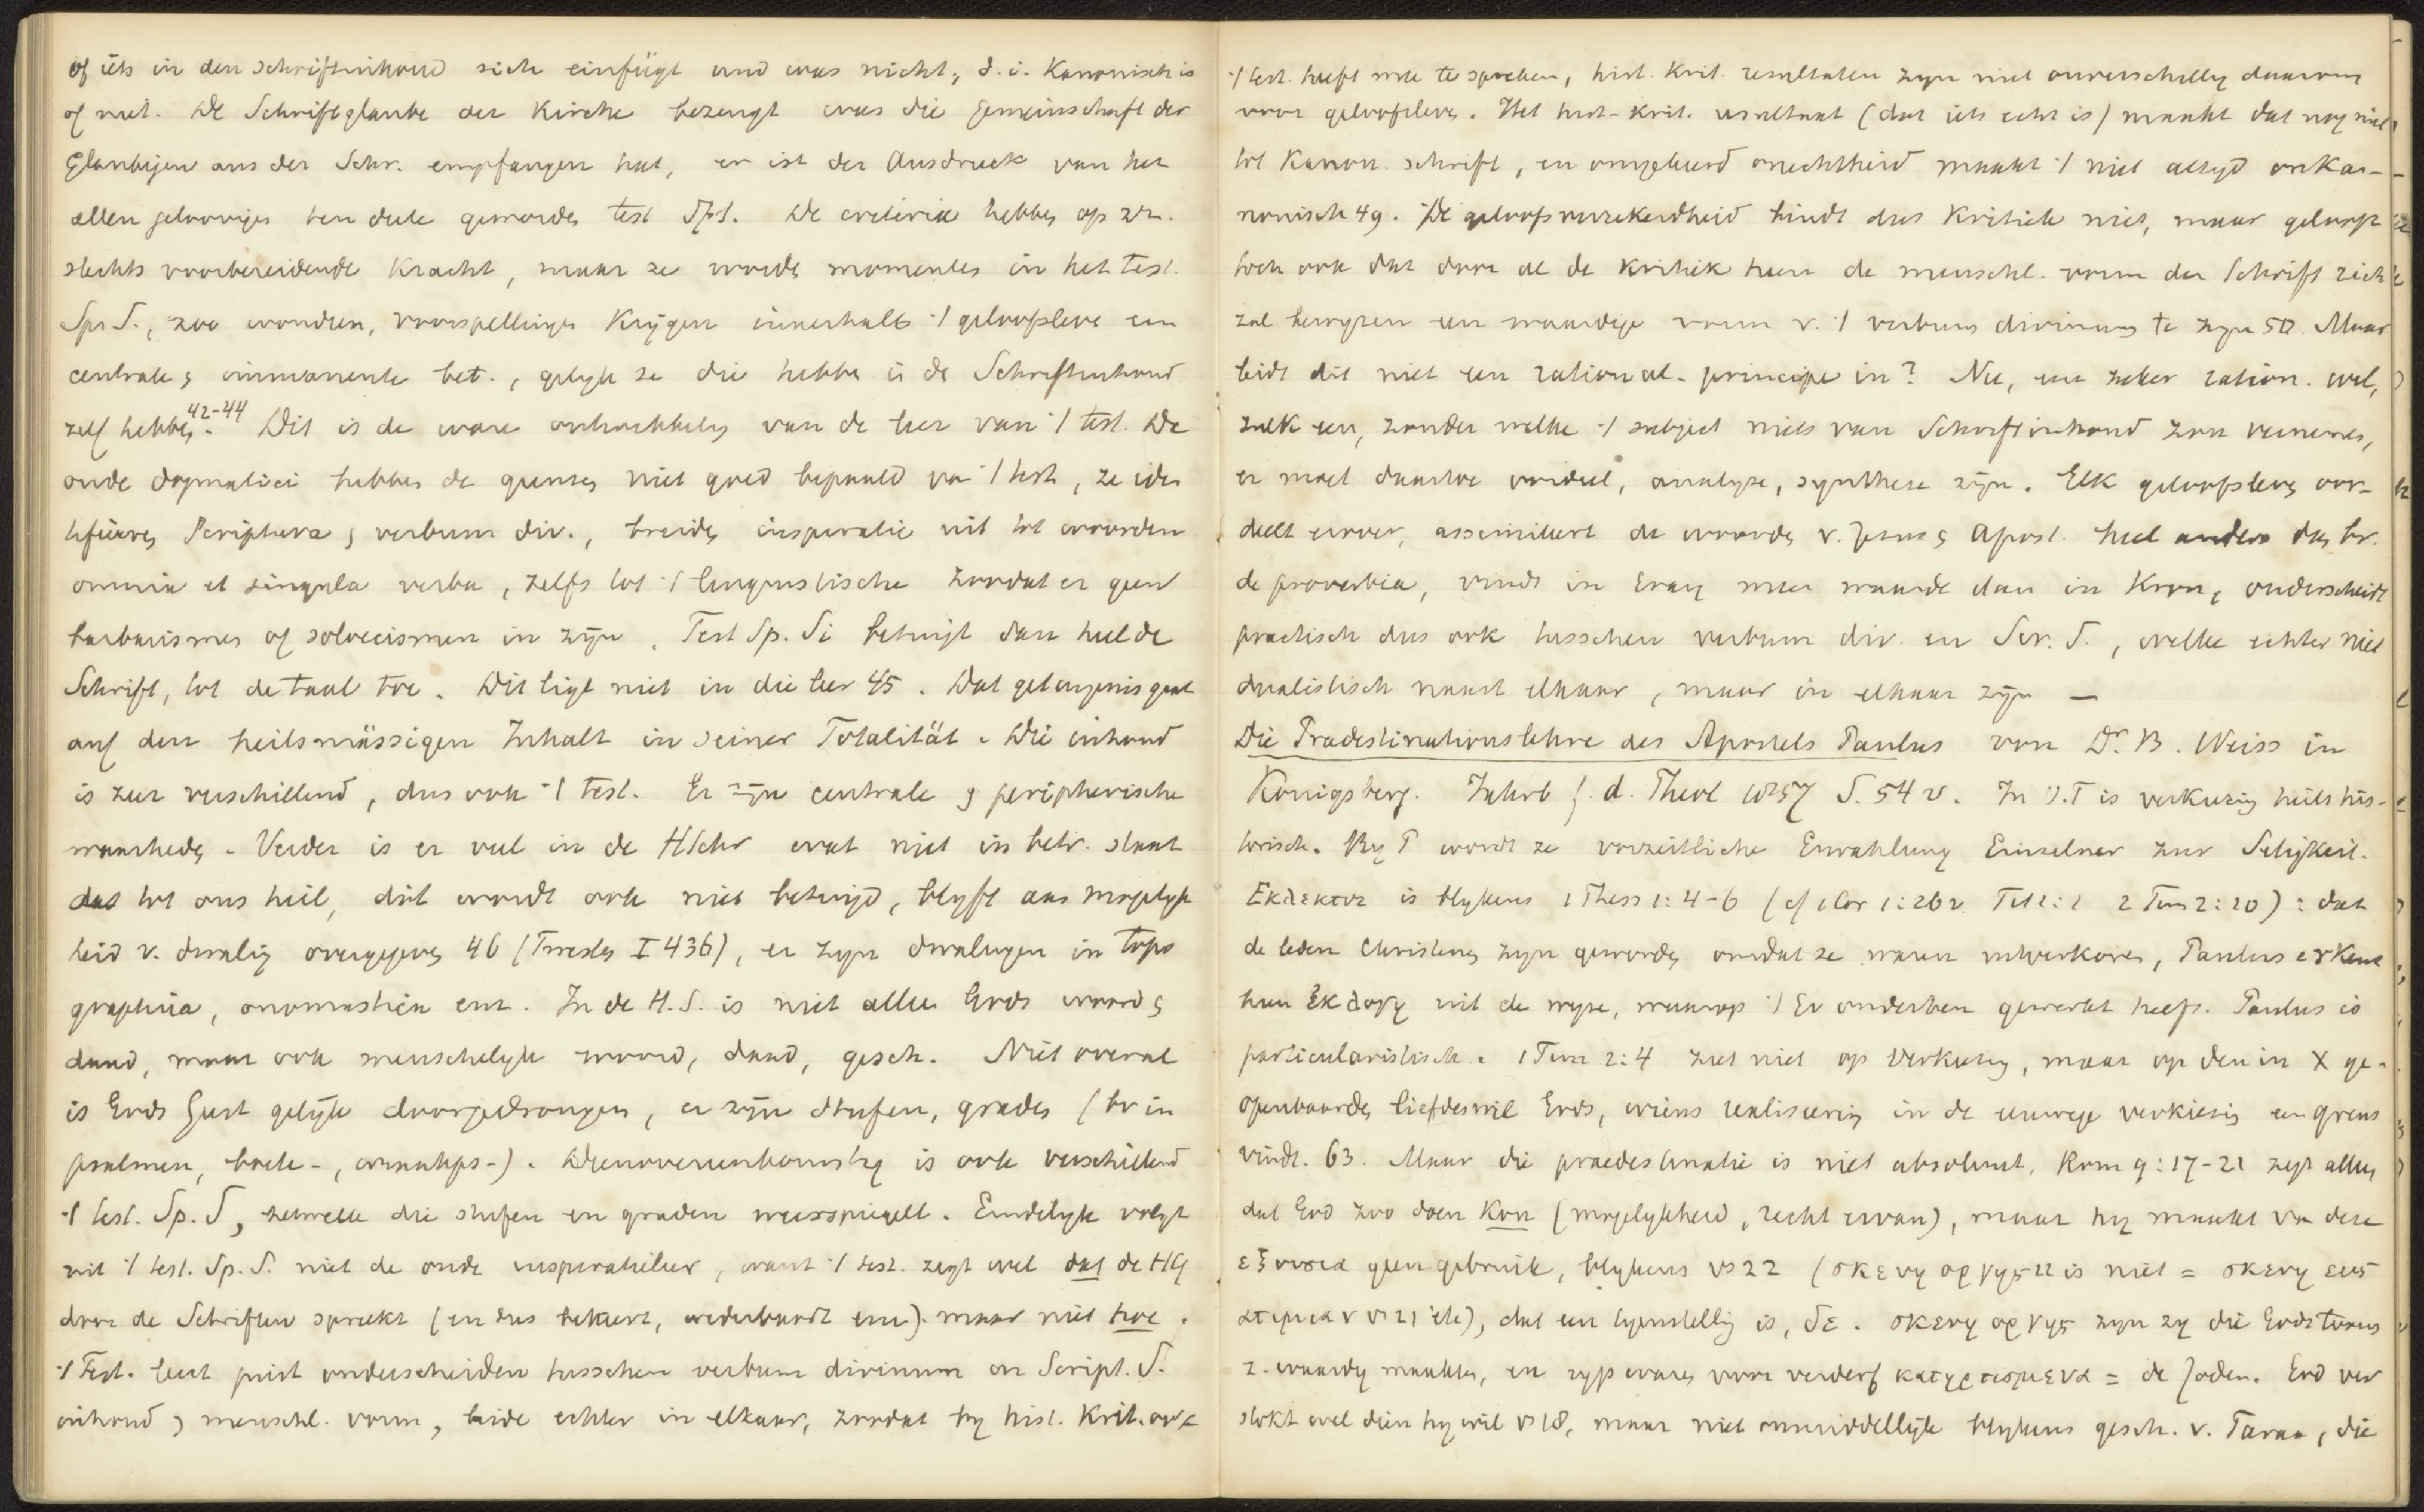 of iets in den Schriftinhoud sich einfügt und was nicht, d.i. Kanonisch is
of niet. De Schriftglaube der Kirche bezeugt was die Gemeinschaft der
Glaubigen aus der Schr. empfangen hat, er ist der Ausdruck van het
allen geloovigen ten deele geworden test Sps. De criteria hebben op zn.
slechts voorbereidende Kracht, maar ze worden momenten in het test.
Sps S., zoo wondren, voorspellingen Krijgen innerhalb ·/ geloofsleven een
centrale en immanente bet., gelijk ze die hebben in de Schriftinhoud
zelf hebben. 42-44 Dit is de ware ontwikkeling van de leer van ·/ test. De
oude dogmatici hebben de grenzen niet goed bepaald van ·/ test, ze iden
tifieeren Scriptura en verbum div., breiden inspiratie uit tot woorden
omnia et singula verba, zelfs tot ·/ linguistische zoodat er geen
barbarismes of solvecismen in zijn. Test Sp. Si betuigt dan heel de
Schrift, tot de taal toe. Dit ligt niet in die leer 45. Dat getuigenis gaat
auf den heilsmässigen Inhalt in seiner Totalität. Die inhoud
is zeer verschillend, dus ook ·/ test. Er zijn centrale en peripherische
waarheden. Verder is er veel in de HSchr wat niet in betr. staat
dat tot ons heil, dit wordt ook niet betuigd, blyft aan mogelyk
heid v. dwaling overgegeven 46 (Twesten I 436), er zyn dwalingen in topo
graphia, onomastica enz. In de H.S. is niet alleen Gods woord en
daad, maar ook menschelyk woord, daad, gesch. Niet overal
is Gods Geest gelijk doorgedrongen, er zijn stufen, graden (bv in
psalmen, boete-, wraakps-). Dienovereenkomstig is ook verschillend
·/ test. Sp. S, hetwelk die stufen en graden weerspiegelt. Eindelyk volgt
uit ·/ test. Sp. S. niet de oude inspiratieleer, want ·/ test. zegt wel dat de HG
door de Schriften spreekt (en dus bekeert, wederbaart enz). maar niet hoe.
·/ Test. leert juist onderscheiden tusschen verbum divinum en Script. S.
inhoud en menschl. vorm, beide echter in elkaar, zoodat by hist. Krit. ook
·/ test. heeft mee te spreken, hist. Krit. resultaten zyn niet onverschillig daarom
voor geloofsleven. Het hist-Krit. resultaat (dat iets echt is) maakt dat nog niet
tot Kanon. schrift, en omgekeerd onechtheid maakt ·/ niet altyd onKa-
nonisch 49. De geloofsverzekerdheid hindt dus Kritiek niet, maar gelooft
toch ook dat door al de Kritiek heen de menschl. vorm der Schrift zich
zal bewyzen een waardige vorm v. ·/ verbum divinum te zyn 50. Maar
leidt dit niet een rational. principe in? Nee, een zeker ration. wel,
zulk een, zonder welke ·/ subject niets van Schriftinhoud zou vernemen,
er moet daartoe oordeel, analyse, synthese zijn. Elk geloofsleven oor-
deelt erover, assimileert de woorden v. Jezus en Apost. heel anders dan bv.
de proverbia, vindt in Evang meer waarde dan in Kron, onderscheidt
practisch dus ook tusschen verbum div. en Scr. S., welke echter niet
dualistisch naast elkaar, maar in elkaar zijn —
Die Pradestinationslehre des Apostels Paulus von Dr. B. Weiss in
Königsberg. Jahrb f. d. Theol 1857 S. 54 v. In O.T is verkiezing heilshis-
torisch. By P wordt ze vorzeitliche Erwahlung Einzelner zur Seligkeit.
Εκλεκτοι is blykens 1 Thess 1: 4-6 (cf 1Cor 1:26v Tit 1:1 2 Tim 2:10): dat
de leden Christenen zyn geworden omdat ze waren uitverkoren, Paulus erkent
hun ἐκλογη uit de wyze, waarop ·/ Ev onder hen gewerkt heeft. Paulus is
particularistisch. 1 Tim 2:4 ziet niet op verkiezing, maar op den in X ge-
openbaarden liefdeswil Gods, wiens realiseering in de eeuwige verkiezing een grens
vindt. 63. Maar die praedestinatie is niet absoluut. Rom 9: 17-21 zegt alleen
dat God zoo doen kon (mogelykheid, recht ervan), maar hy maakt van deze
εξουσια geen gebruik, blykens vs 22 (σκευη οργης 22 is niet = σκευη εις
ατιμιαν vs 21 etc), dat een tegenstelling is, δε. σκευη οργης zyn zy die Gods toorn
z. waardig maakten, en ryp waren voor verderf κατηρτισμενα = de Joden. God ver
stokt wel dien hy wil vs 18, maar niet onmiddellijk blykens gesch. v. Farao, die